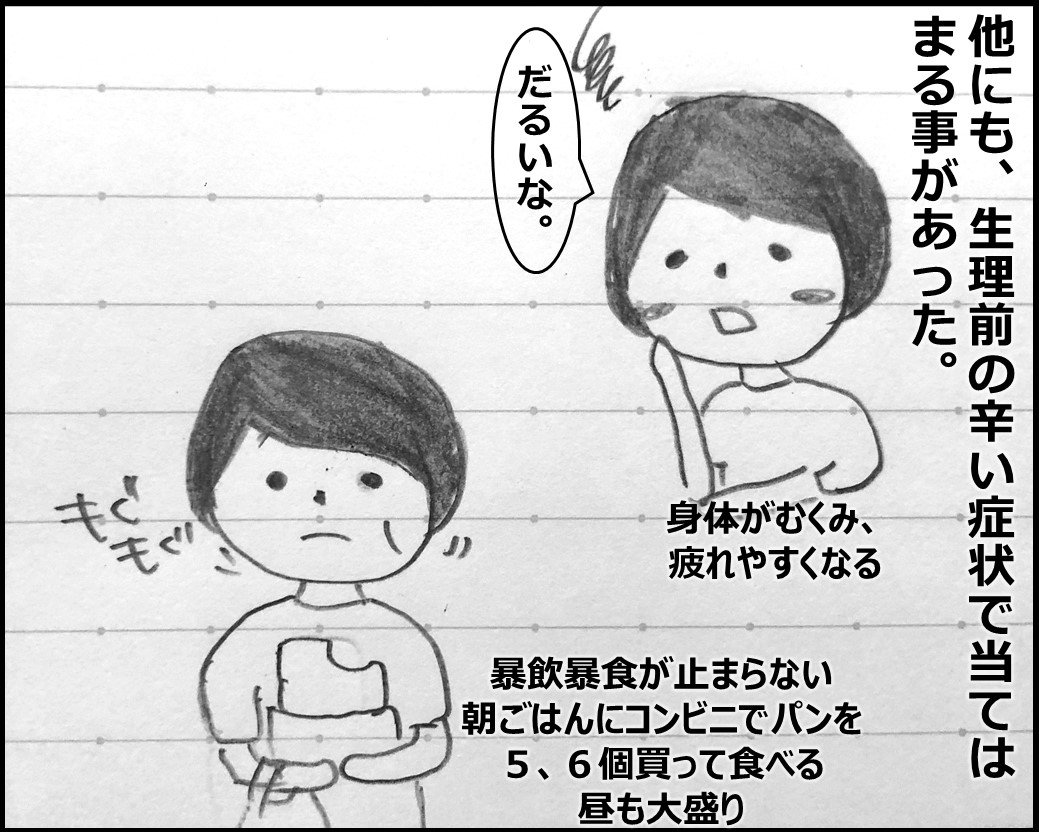 他にも、生理前の辛い症状で当ては
まる事があった。
だるいな。
身体がむくみ、
疲れやすくなる
もぐ
もぐ
暴飲暴食が止まらない
朝ごはんにコンビニでパンを
５、６個買って食べる
昼も大盛り